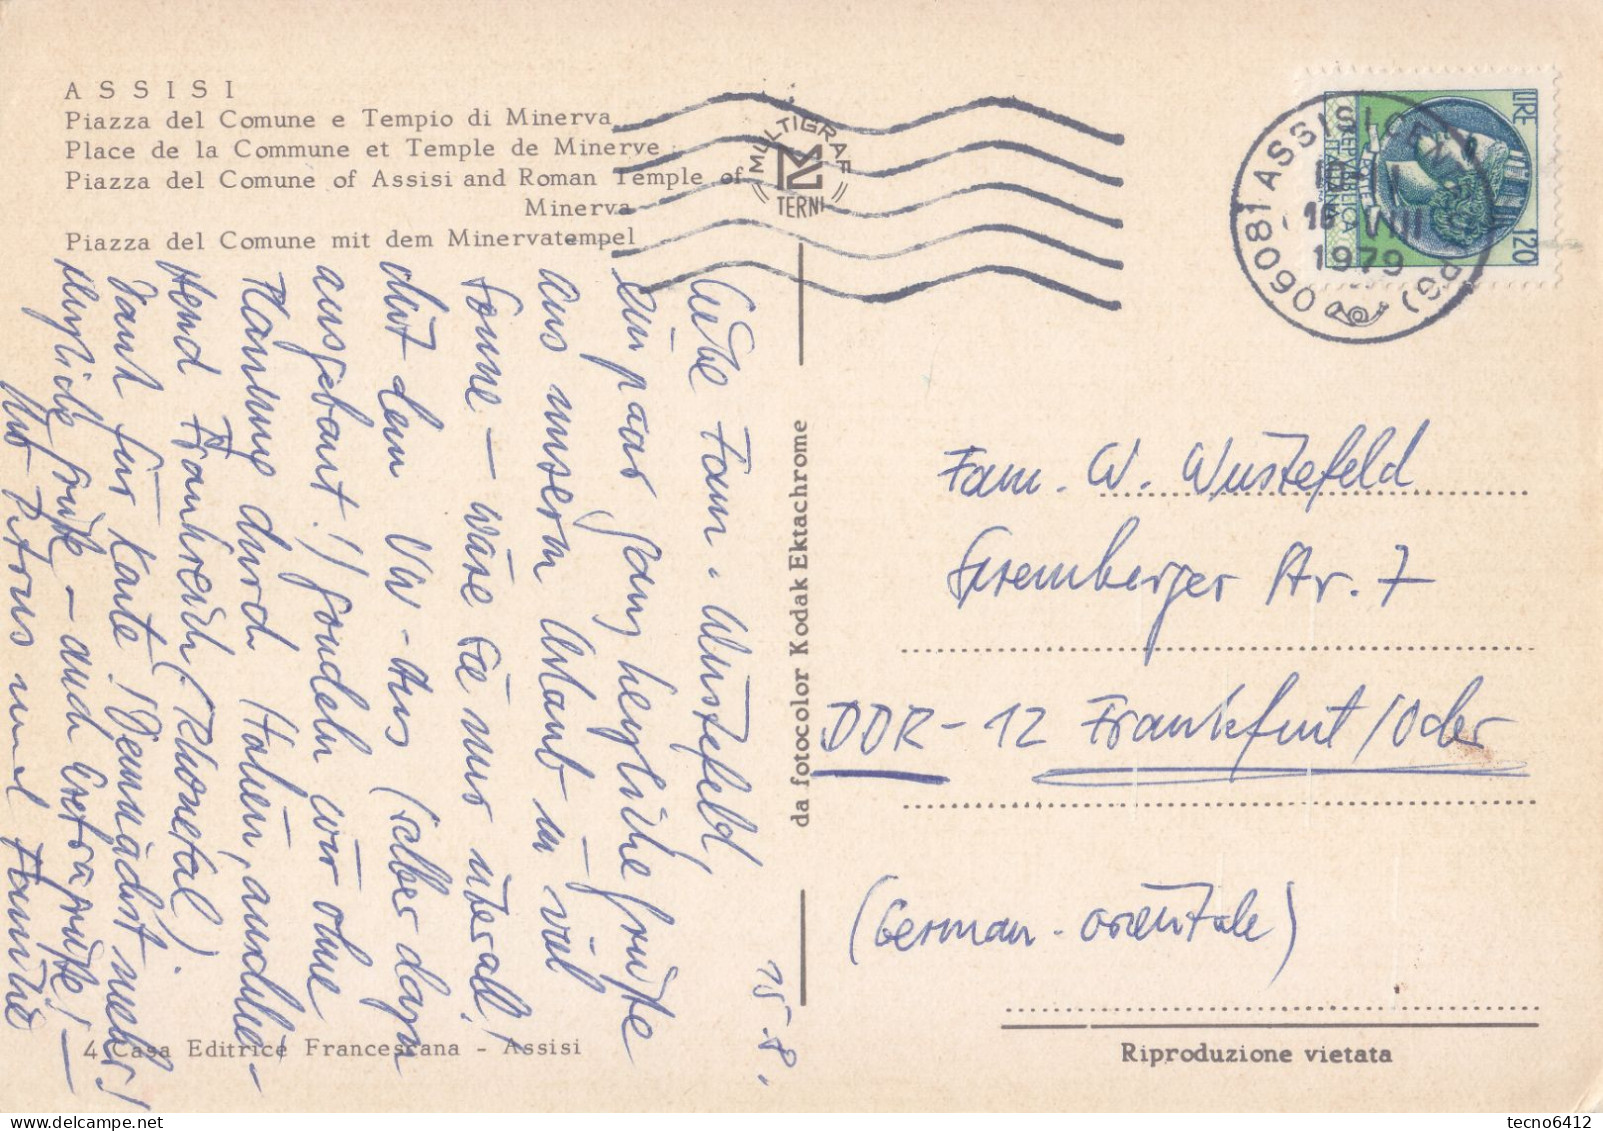 ASSISI
Piazza del Comune e Tempio di Minerva
Place de la Commune et Temple de Minerve
Piazza del Comune of Assisi and Roman Temple of
Minerva
Piazza del Comune mit dem Minervatempel
MULTIGRAF
TERNI
06081 ASSISI CEN
(PG)
VIII
1979
LIRE 120
REPUBBLICA
ITALIANA
15.8.
Liebe Fam. Wustefeld,
ein paar ganz herzliche Grüße
aus unserem Urlaub in viel
Sonne – wäre sie nur überall!
Mit dem VW-Bus (selber dazu
ausgebaut!) gondeln wir ohne
Planung durch Italien, anschlie-
ßend Frankreich (Rhonetal).
Dank für Karte! Demnächst mehr!
Herzliche Grüße – auch
und Familie
da fotocolor Kodak Ektachrome
Fam. W. Wustefeld
Str. 7
DDR-12 Frankfurt/Oder
(German. orientale)
4 Casa Editrice Francescana - Assisi
Riproduzione vietata
tecno6412